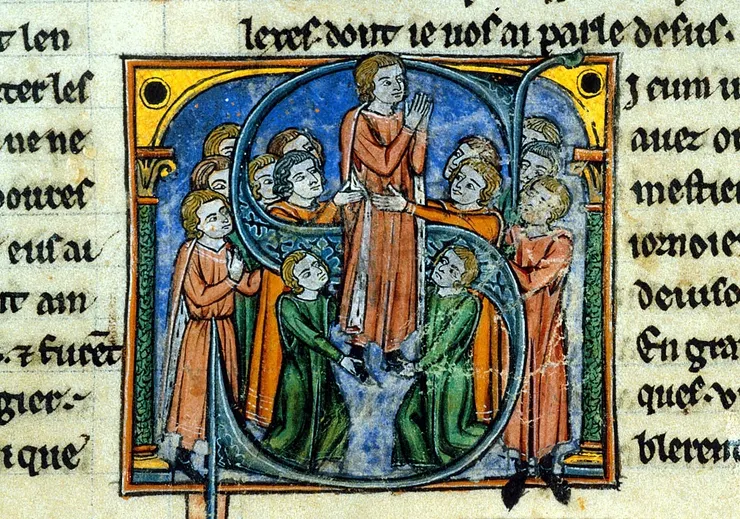 t len
tter les
ue ne
poures
eus ai
nt am
. ⁊ furēt
gier.
ique
dont ie uos ai parle desus.
S
I cum u
auez
mestie
iornoie
deuiso
En gra
ques. v
bleren